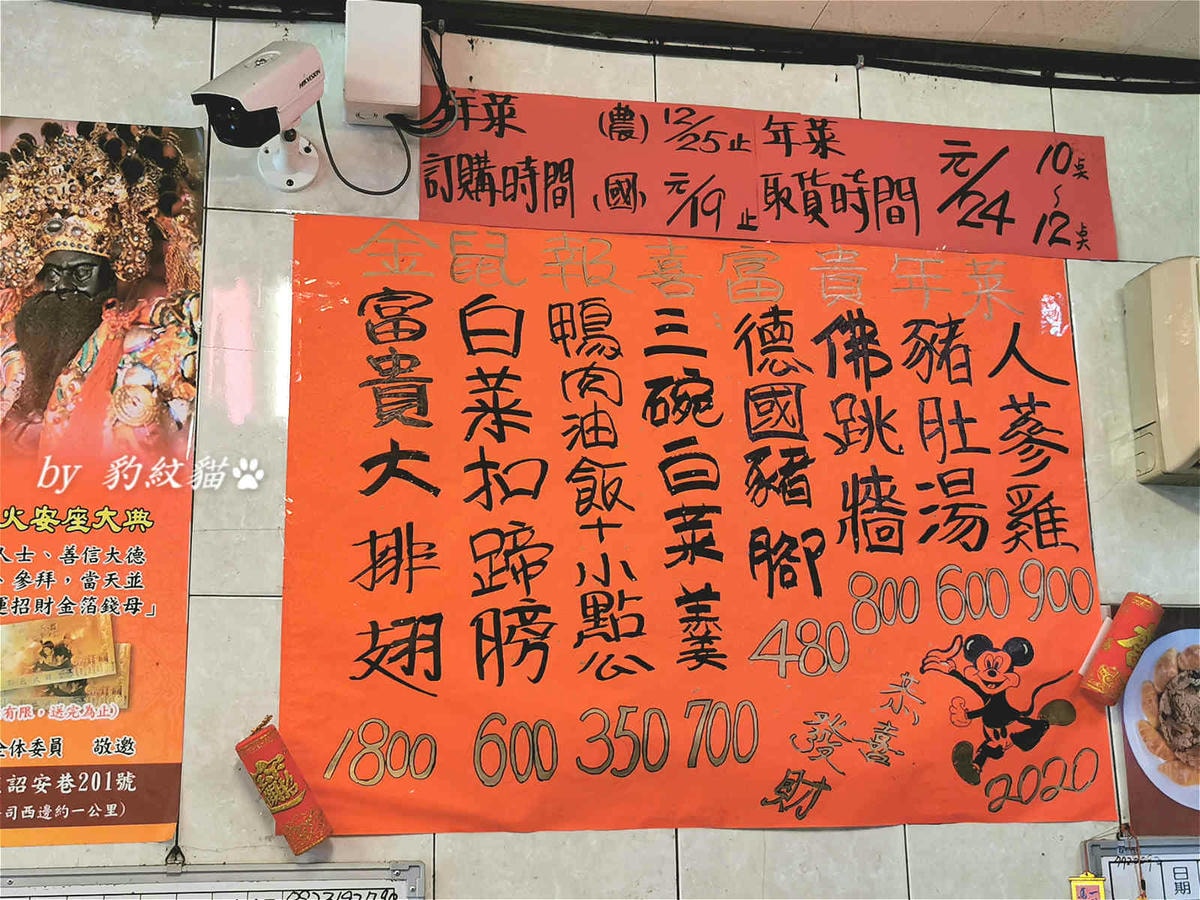 HIKVISION
年菜 (農) 12/25止
訂購時間 (國) 元/19止
年菜
取貨時間
元/24
10点
~
12点
金鼠報喜富貴年菜
人蔘雞
900
豬肚湯
600
佛跳牆
800
德國豬腳
480
三碗白菜羹
700
鴨肉油飯十小點心
350
白菜扣蹄膀
600
富貴大排翅
1800
恭喜
發財
2020
by 豹紋貓
火安座大典
人士、善信大德
參拜,當天並
運招財金箔錢母」
有限,送完為止)
全体委員 敬邀
詔安巷201號
司西邊約一公里)
日期